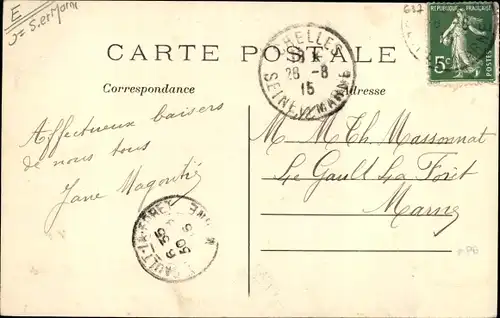 E
Sne et Marne
637
CARTE POSTALE
Correspondance
Adresse
CHELLES
28 -8
15
SEINE-ET-MARNE
RÉPUBLIQUE FRANÇAISE
5c
Affectueux baisers
de nous tous
Jane Magontié
M. M. Th. Massonnat
Le Gault La Forêt
Marne
LE GAULT-LA-FORET
MARNE